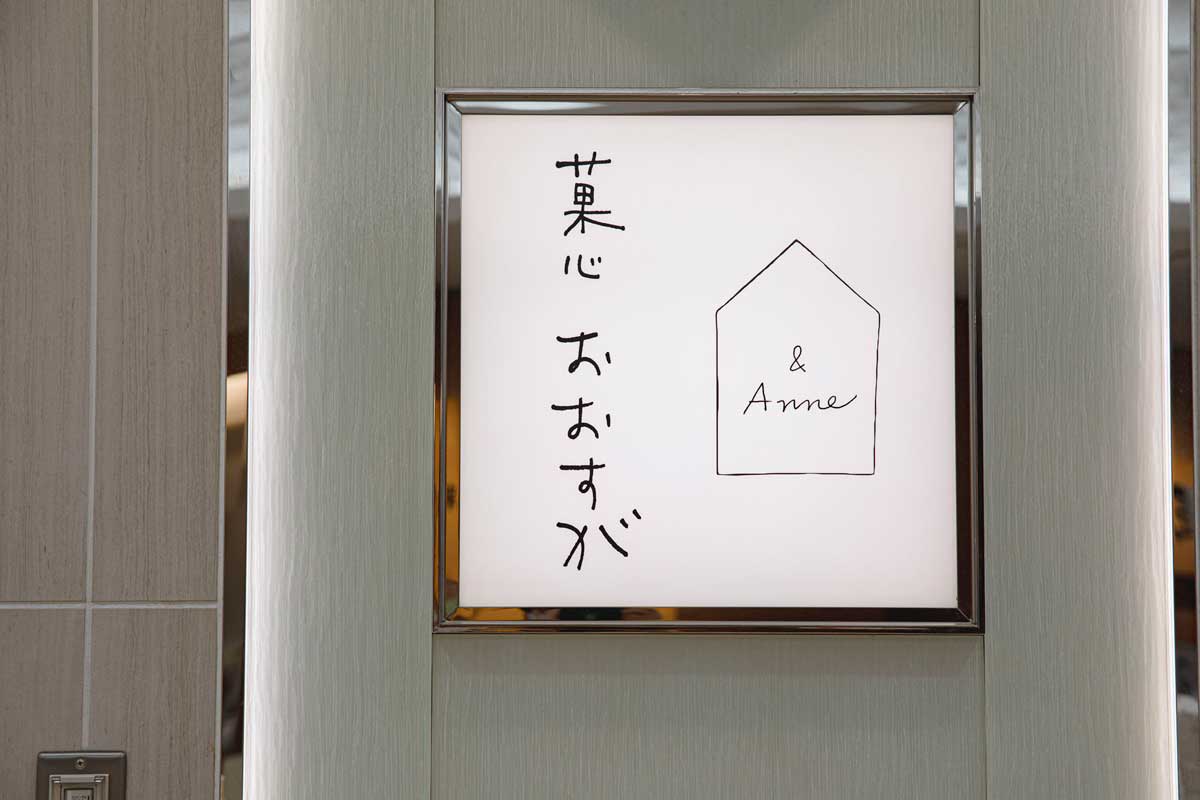 菓心 おおすが
&
Anne